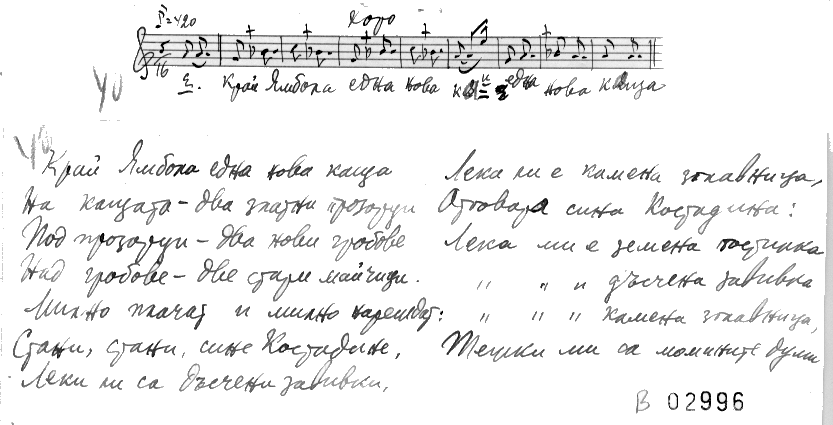 ♪=420
Хоро
5
16
Е. Край Ямбола една нова къща една нова къща
Край Ямбола една нова каща
На кащата – два златни прозорци
Под прозорци – два нови гробове
Над гробове – две стари майчици.
Милно плачат и милно нареждат:
Стани, стани, сине Костадине,
Леки ли са дъсчени завивки,
Лека ли е камена зглавница,
Отговаря сина Костадина:
Лека ми е земена постилка
,, ,, ,, дъсчена завивка
,, ,, ,, камена зглавница,
Тешки ми са момините думи
В 02996